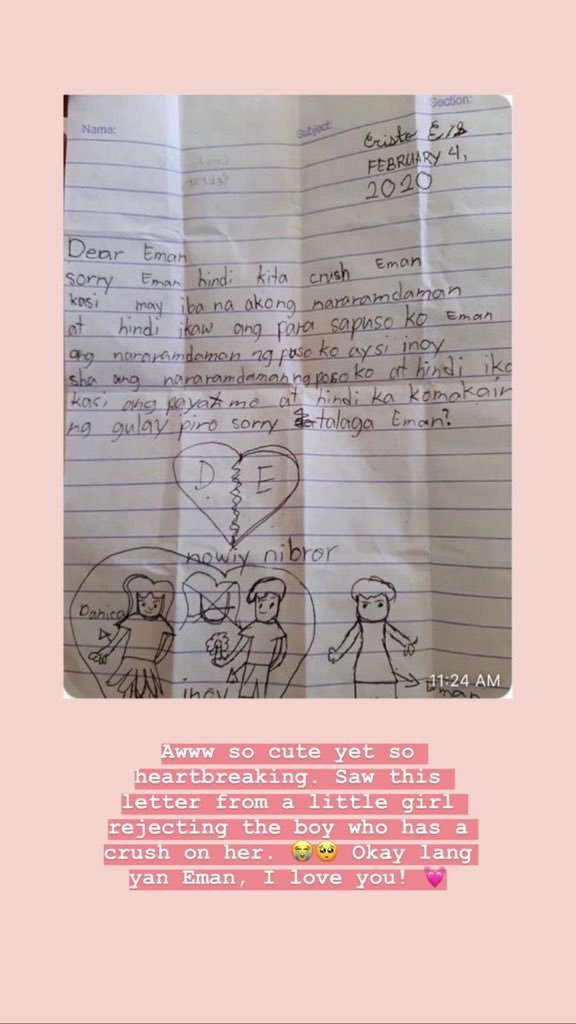 Name:
Subject:
Section:
Cristo E/S
FEBRUARY 4,
2020
Dear Eman
sorry Eman hindi kita crush Eman
kasi may iba na akong nararamdaman
at hindi ikaw ang para sapuso ko Eman
ang nararamdaman ng puso ko aysi inoy
sha ang nararamdaman ng poso ko at hindi iko
kasi ang payat mo at hindi ka komakain
ng gulay piro sorry talaga Eman?
D E
nowiy nibror
Danica
inoy
Eman
11:24 AM
Awww so cute yet so
heartbreaking. Saw this
letter from a little girl
rejecting the boy who has a
crush on her. 😭🥺 Okay lang
yan Eman, I love you! 💓